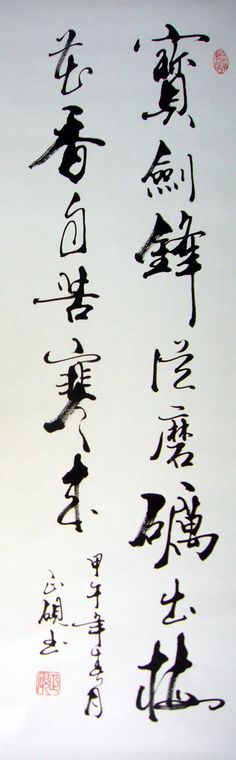 寶劍鋒從磨礪出梅
花香自苦寒來
甲午年月
書